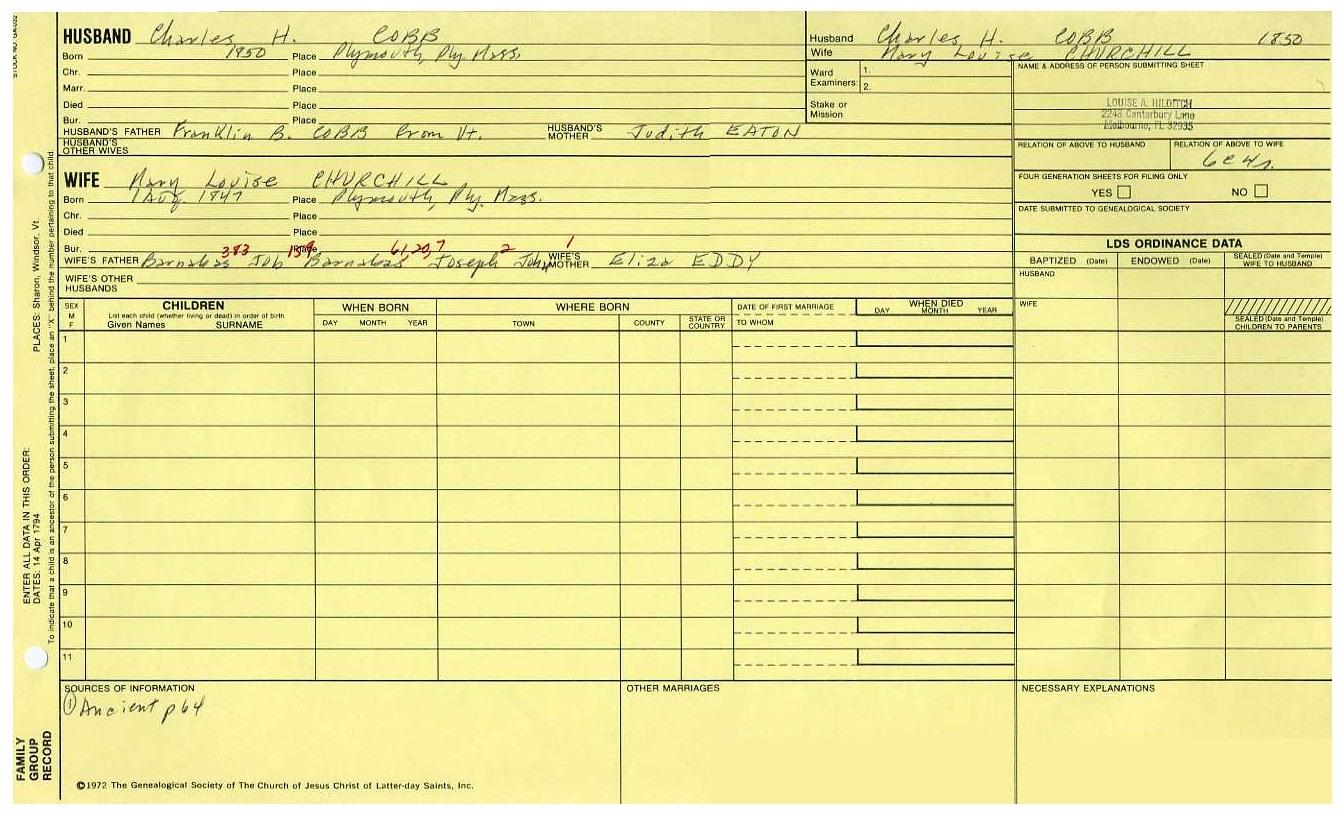 STOCK NO. GA-032
HUSBAND Charles H. COBB
Born 1850 Place Plymouth, Ply. Mass.
Chr. Place
Marr. Place
Died Place
Bur. Place
HUSBAND'S FATHER Franklin B. COBB from Vt. HUSBAND'S MOTHER Judith EATON
HUSBAND'S OTHER WIVES
WIFE Mary Louise CHURCHILL
Born 1 Aug. 1847 Place Plymouth, Ply. Mass.
Chr. Place
Died Place
Bur. Place
383 159 61,20,7 2 1
WIFE'S FATHER Barnabas Job Barnabas Joseph John WIFE'S MOTHER Eliza EDDY
WIFE'S OTHER HUSBANDS
Husband Charles H. COBB 1850
Wife Mary Louise CHURCHILL
Ward Examiners: 1.
2.
Stake or Mission
NAME & ADDRESS OF PERSON SUBMITTING SHEET
LOUISE A. HILDITCH
2248 Canterbury Lane
Melbourne, FL 32935
RELATION OF ABOVE TO HUSBAND
RELATION OF ABOVE TO WIFE
6C4r.
FOUR GENERATION SHEETS FOR FILING ONLY
YES NO
DATE SUBMITTED TO GENEALOGICAL SOCIETY
LDS ORDINANCE DATA
BAPTIZED (Date) ENDOWED (Date) SEALED (Date and Temple) WIFE TO HUSBAND
HUSBAND
WIFE
SEALED (Date and Temple) CHILDREN TO PARENTS
SEX M F
CHILDREN
List each child (whether living or dead) in order of birth
Given Names SURNAME
WHEN BORN
DAY MONTH YEAR
WHERE BORN
TOWN COUNTY STATE OR COUNTRY
DATE OF FIRST MARRIAGE
TO WHOM
WHEN DIED
DAY MONTH YEAR
1
2
3
4
5
6
7
8
9
10
11
SOURCES OF INFORMATION
① Ancient p 64
OTHER MARRIAGES
NECESSARY EXPLANATIONS
©1972 The Genealogical Society of The Church of Jesus Christ of Latter-day Saints, Inc.
FAMILY GROUP RECORD
ENTER ALL DATA IN THIS ORDER:
DATES: 14 Apr 1794 PLACES: Sharon, Windsor, Vt.
To indicate that a child is an ancestor of the person submitting the sheet, place an "X" behind the number pertaining to that child.